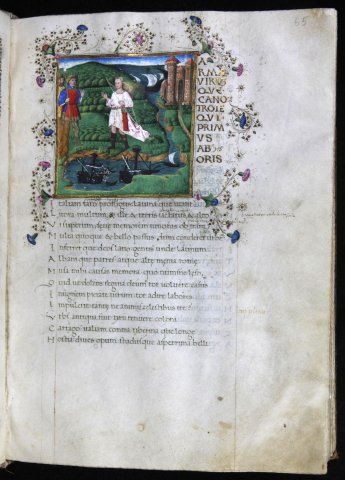 65
A
RMA
VIRVM
QVE
CANO
TROIE
QVI
PRIMVS
AB
ORIS
Italiam fato profugus
Litora multum ille & terris iactatus & alto
Vi superum seve memorem iunonis ob iram
Multa quoque & bello passus dum conderet urbem
Inferretque deos latio genus unde latinum
Albanique patres atque alte menia rome
Musa mihi causas memora quo numine leso
Quid ve dolens regina deum tot volvere casus
Insignem pietate virum tot adire labores
Impulerit tantene animis celestibus ire
Urbs antiqua fuit tirii tenuere coloni
Cartago italiam contra tiberina que longe
Hostia dives opum studiisque asperrima belli